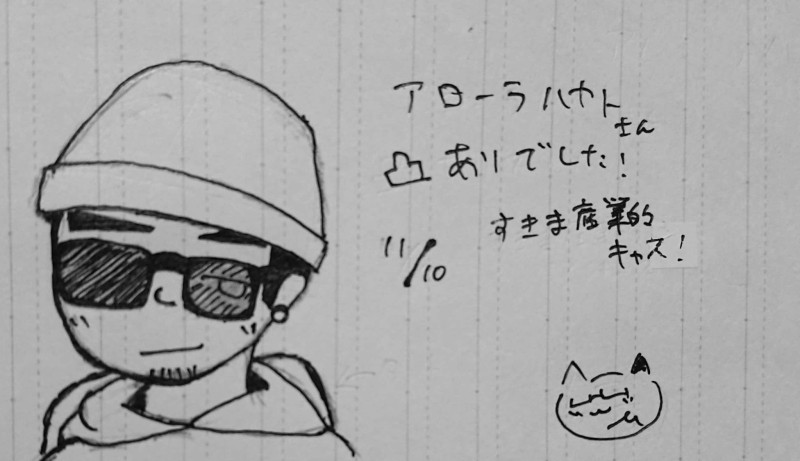 アローラハヤトさん
凸ありでした!
すきま産業的
キャス!
11/10